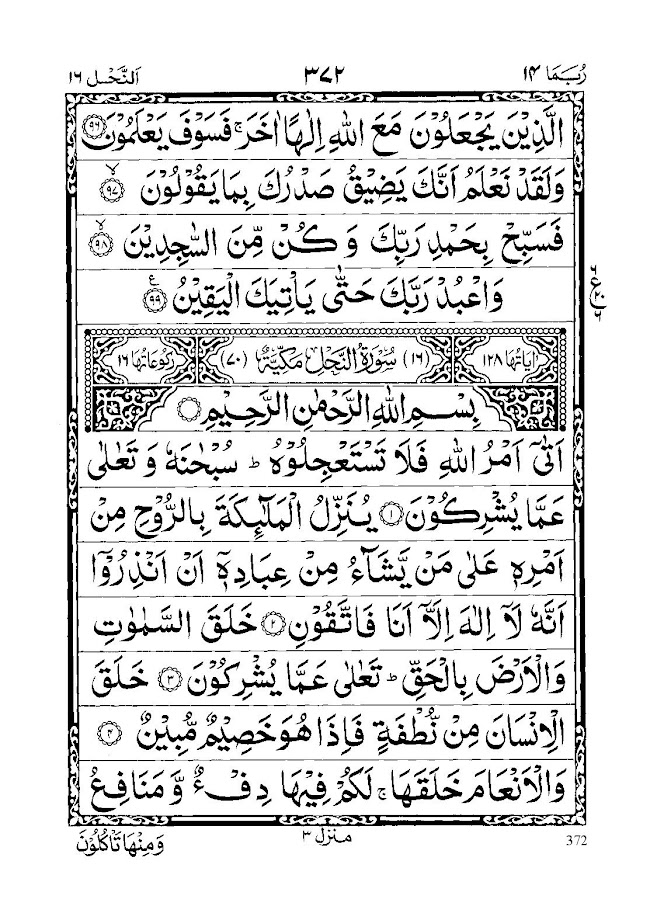 رُبَمَا ۱۴ ۳۷۲ اَلنَّحْل ۱۶
الَّذِيْنَ يَجْعَلُوْنَ مَعَ اللّٰهِ اِلٰهًا اٰخَرَ ۚ فَسَوْفَ يَعْلَمُوْنَ ۹۶
وَلَقَدْ نَعْلَمُ اَنَّكَ يَضِيْقُ صَدْرُكَ بِمَا يَقُوْلُوْنَ ۙ ۹۷
فَسَبِّحْ بِحَمْدِ رَبِّكَ وَ كُنْ مِّنَ السّٰجِدِيْنَ ۙ ۹۸
وَاعْبُدْ رَبَّكَ حَتّٰى يَاْتِيَكَ الْيَقِيْنُ ع ۹۹
۶ ع ۲۰ ۶
اٰيَاتُهَا ۱۲۸ (۱۶) سُوْرَةُ النَّحْلِ مَكِّيَّةٌ (۷۰) رُكُوْعَاتُهَا ۱۶
بِسْمِ اللّٰهِ الرَّحْمٰنِ الرَّحِيْمِ
اَتٰۤى اَمْرُ اللّٰهِ فَلَا تَسْتَعْجِلُوْهُ ؕ سُبْحٰنَهٗ وَ تَعٰلٰى
عَمَّا يُشْرِكُوْنَ ۱ يُنَزِّلُ الْمَلٰٓئِكَةَ بِالرُّوْحِ مِنْ
اَمْرِهٖ عَلٰى مَنْ يَّشَآءُ مِنْ عِبَادِهٖۤ اَنْ اَنْذِرُوْۤا
اَنَّهٗ لَاۤ اِلٰهَ اِلَّاۤ اَنَا فَاتَّقُوْنِ ۲ خَلَقَ السَّمٰوٰتِ
وَالْاَرْضَ بِالْحَقِّ ؕ تَعٰلٰى عَمَّا يُشْرِكُوْنَ ۳ خَلَقَ
الْاِنْسَانَ مِنْ نُّطْفَةٍ فَاِذَا هُوَ خَصِيْمٌ مُّبِيْنٌ ۴
وَالْاَنْعَامَ خَلَقَهَا ۚ لَكُمْ فِيْهَا دِفْءٌ وَّ مَنَافِعُ
372 منزل ۳ وَمِنْهَا تَاْكُلُوْنَ